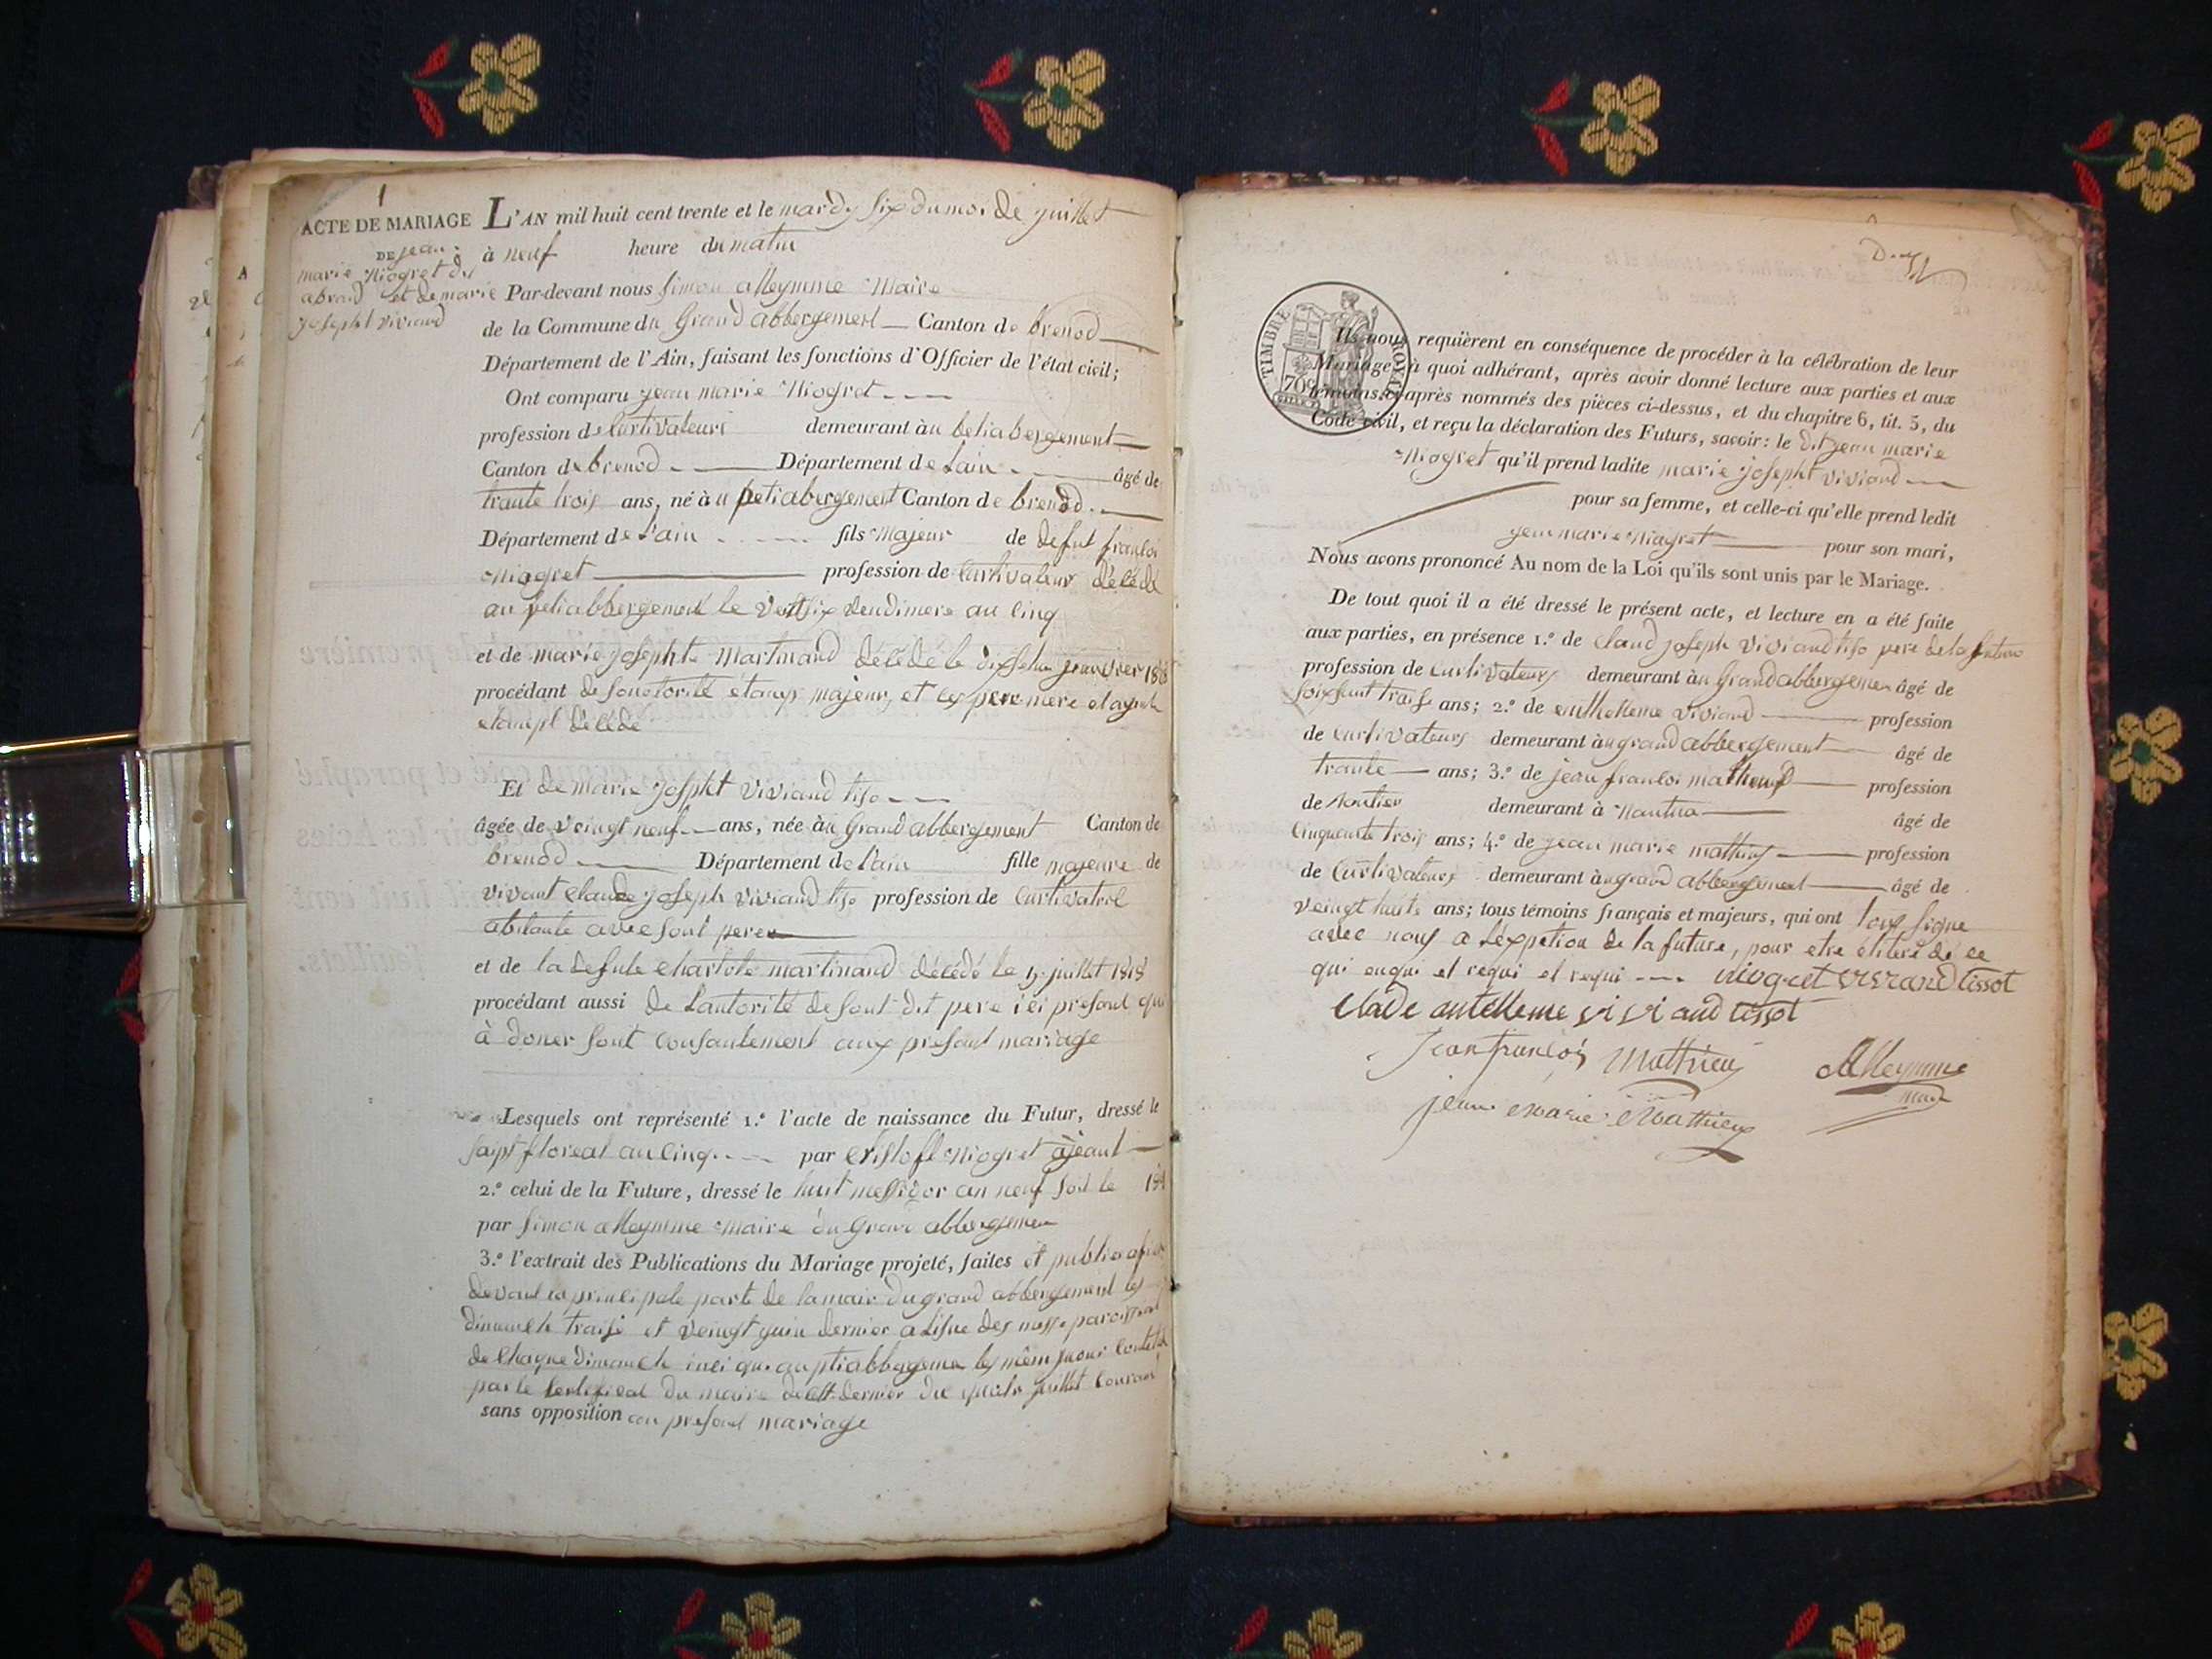 1
ACTE DE MARIAGE
DE jean
marie Niogret du
abraid et de marie
josepht viviand
L'AN mil huit cent trente et le mardy six du moi de juillet
à neuf heure du matin
Par-devant nous simon alleymme Maire
de la Commune du Grand abbergement Canton de brenod
Département de l'Ain, faisant les fonctions d'Officier de l'état civil;
Ont comparu jean marie Niogret
profession de Curtivateurs demeurant àu petiabergement
Canton de brenod Département de Lain âgé de
trante trois ans, né àu petiabergement Canton de brenod
Département de L'ain fils Majeur de defut franloi
Niogret profession de Curtivateur décédé
au petiabbergement le vent six vendimere au cinq
et de marie josephte Martinand décédé le dix janvier
procédant de son otorité étanps majeur, et les pere mere et ayeule
etampt décédé
Et de marie josepht viviand tiso
âgée de veingt neuf ans, née àu Grand abbergement Canton de
brenod Département de l'ain fille majeure de
vivant claude joseph viviand tiso profession de Curtivateur
abitante avec sont pere
et de la defute charlote martinand décédé le 15 juillet 1818
procédant aussi de Lautorité de sont dit pere ici present qui
à doner sont consantement aux presant mariage
Lesquels ont représenté 1.° l'acte de naissance du Futur, dressé le
sapt floreal an cinq par Cristofle Niogret ajeant
2.° celui de la Future, dressé le huit messidor an neuf soit le
par simon alleymme Maire du Grand abbergemen
3.° l'extrait des Publications du Mariage projeté, faites et public afiché
devant la principale porte de la mair du grand abbergement les
dimanch traise et veingt juin dernier a lisue des messe paroissial
de chaque dimanch inci qu. au ptiabbergeme les mêm jour
par le sertificat du maire de cest dernier du quatr juillet courant
sans opposition au presant mariage
D.
TIMBRE ROYAL
70c
Ils nous requièrent en conséquence de procéder à la célébration de leur
Mariage; à quoi adhérant, après avoir donné lecture aux parties et aux
témoins ci-après nommés des pièces ci-dessus, et du chapitre 6, tit. 5, du
Code civil, et reçu la déclaration des Futurs, savoir: le dit jean marie
Niogret qu'il prend ladite marie josepht viviand
pour sa femme, et celle-ci qu'elle prend ledit
jean marie Niogret pour son mari,
Nous avons prononcé Au nom de la Loi qu'ils sont unis par le Mariage.
De tout quoi il a été dressé le présent acte, et lecture en a été faite
aux parties, en présence 1.° de Claud joseph viviand tiso pere de la future
profession de Curtivateurs demeurant àu Grand abbergemen âgé de
soissant traise ans; 2.° de anthelleme viviand profession
de Curtivateurs demeurant àu grand abbergement âgé de
trante ans; 3.° de jean franloi mathieu profession
de demeurant à Nantua âgé de
cinquante trois ans; 4.° de jean marie mathieu profession
de Curtivateurs demeurant àu grand abbergement âgé de
veingt huite ans; tous témoins français et majeurs, qui ont tous signe
avec nous a Léxpetion de la future, pour etre de ce
qui enqui et requi et requi niogret viviand tissot
Clade antelleme vi vi and tissot
Jean françois Mathieu
Alleymme
Maire
jean Marie Mathieu